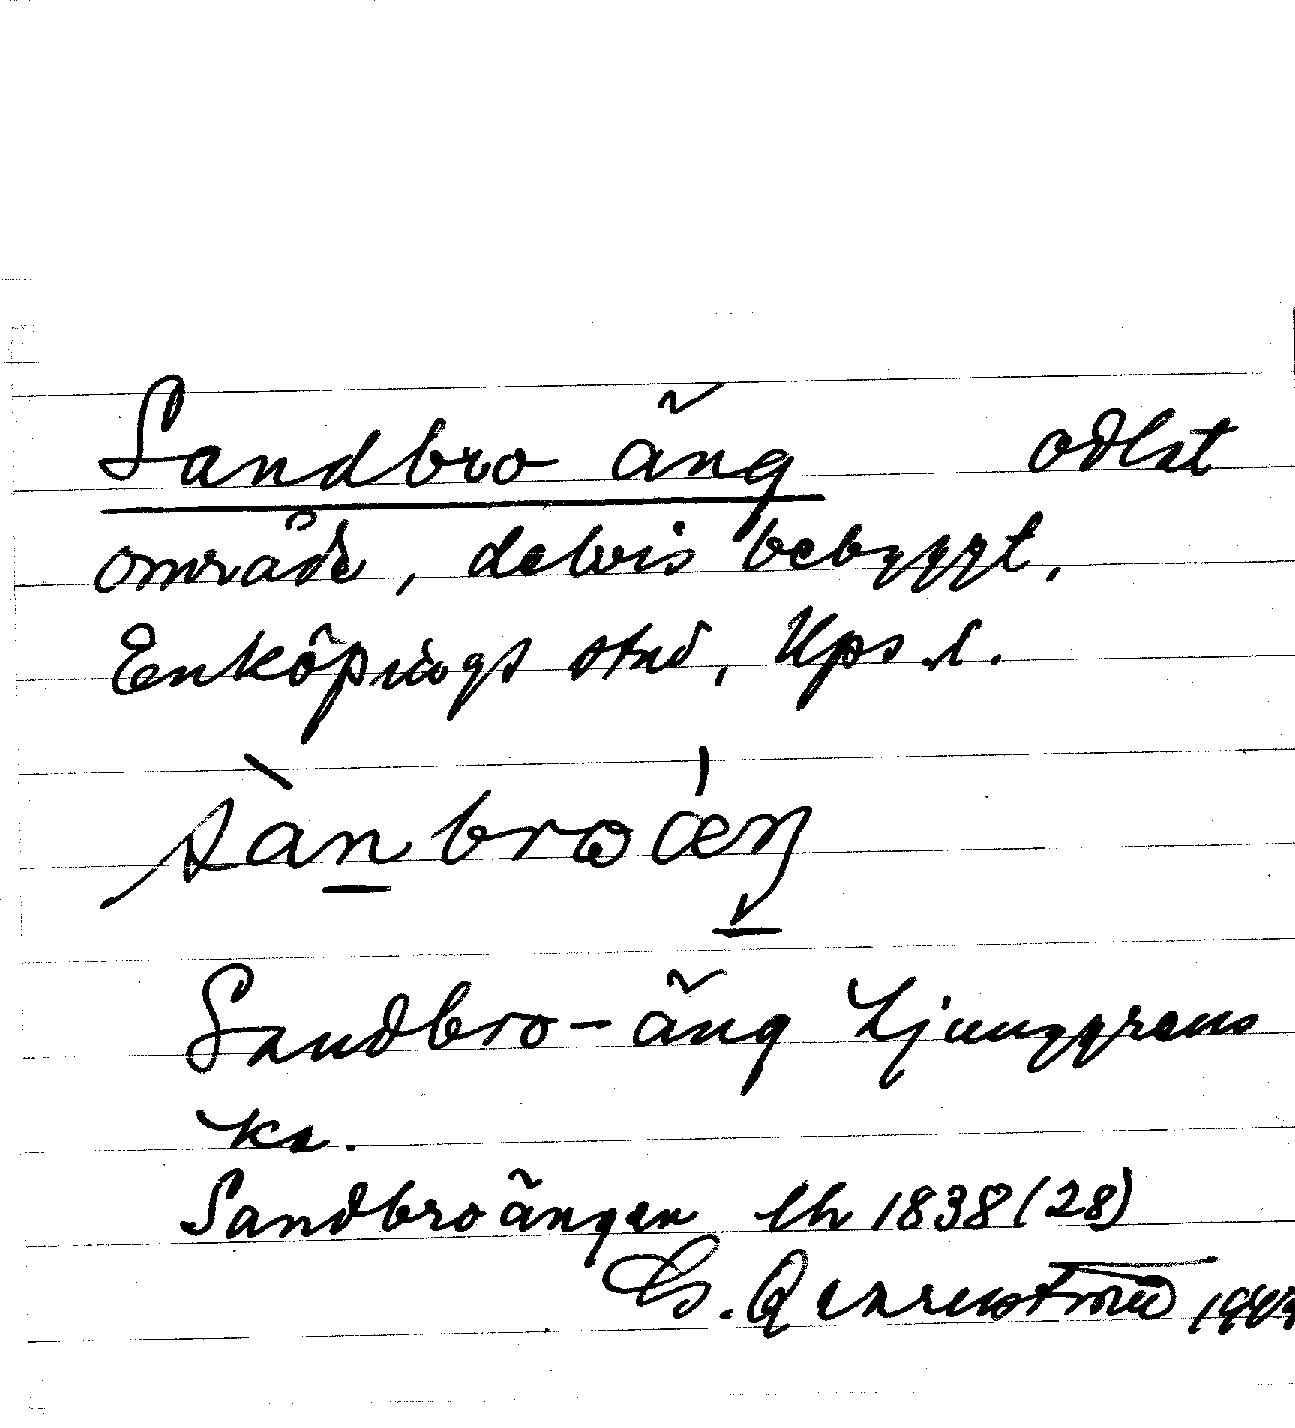 Sandbro äng odlat
område, delvis bebyggt,
Enköpings stad, Ups. l.
sànbroæŋ
Sandbro-äng Ljunggrens
ka.
Sandbroängen lh 1838 (28)
G. Qvarnström